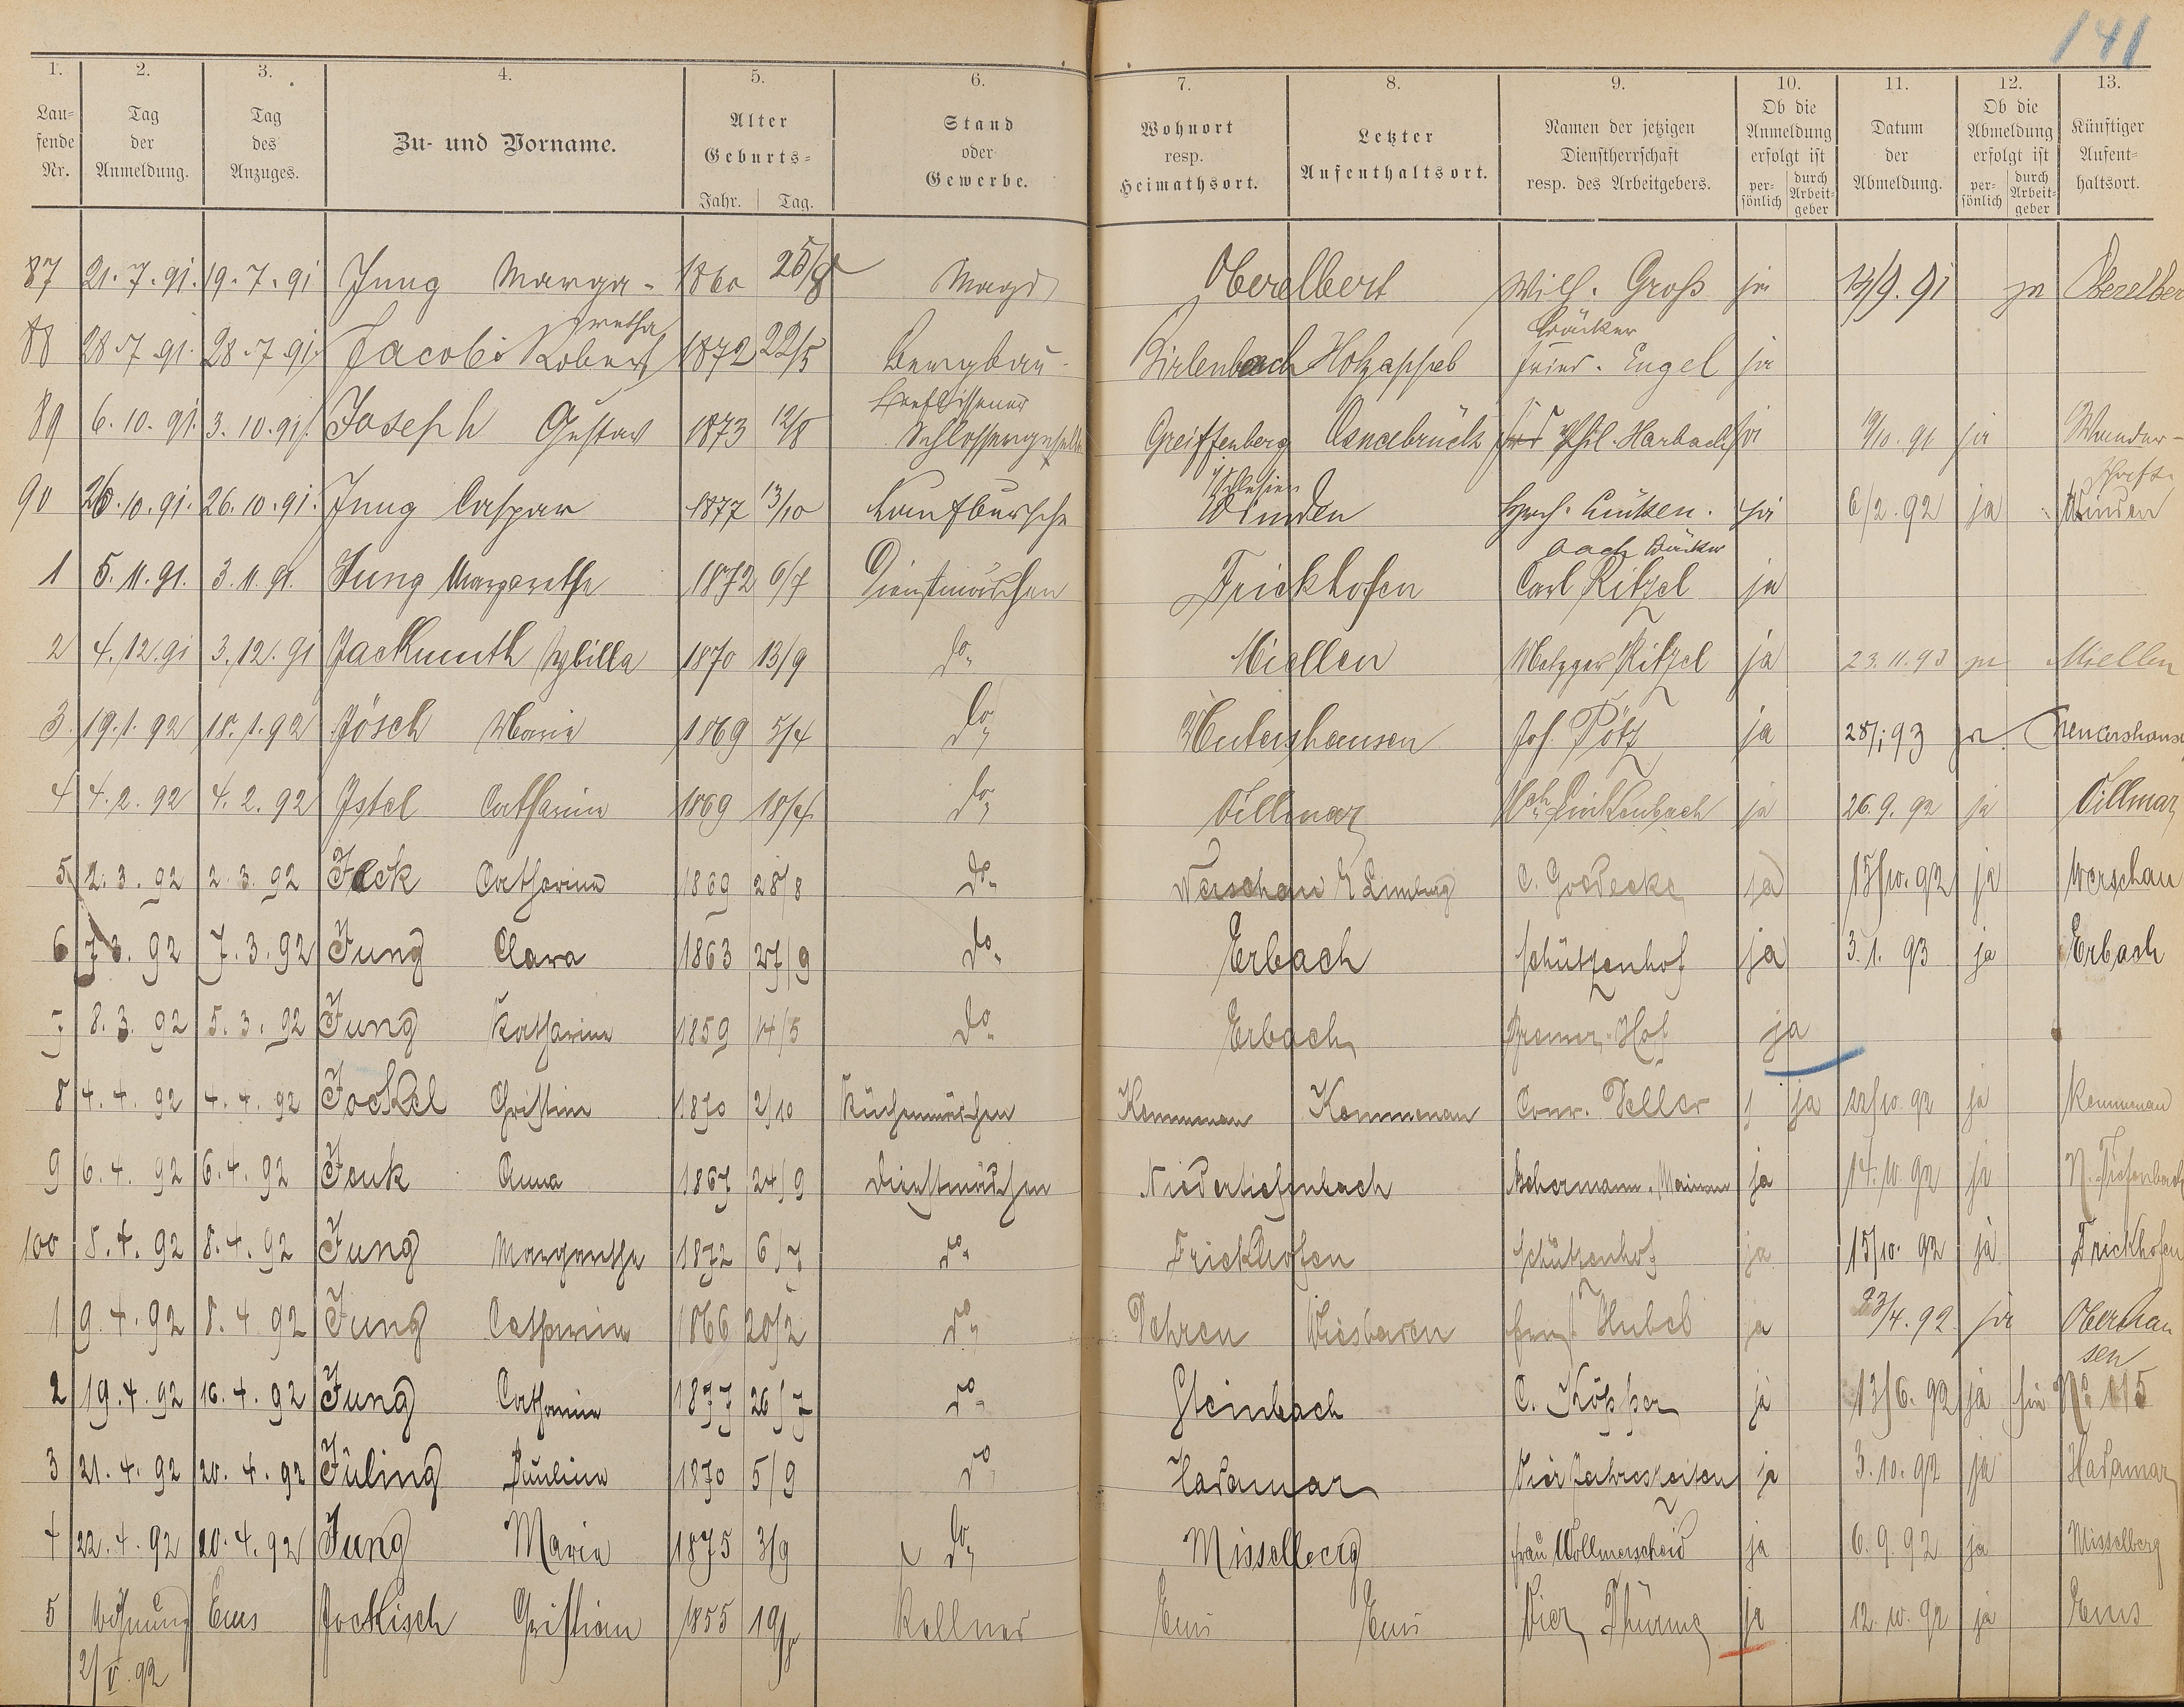 141
1. 2. 3. 4. 5. 6. 7. 8. 9. 10. 11. 12. 13.
Laufende Nr. Tag der Anmeldung. Tag des Anzuges. Zu- und Vorname. Alter Geburts- Jahr. Tag. Stand oder Gewerbe. Wohnort resp. Heimathsort. Letzter Aufenthaltsort. Namen der jetzigen Dienstherrschaft resp. des Arbeitgebers. Ob die Anmeldung erfolgt ist persönlich durch Arbeitgeber Datum der Abmeldung. Ob die Abmeldung erfolgt ist persönlich durch Arbeitgeber Künftiger Aufenthaltsort.
87 21.7.91. 19.7.91 Jung Marga- 1860 25/8 Magd Oberelbert Wilh. Groß ja 13/9.91 ja Oberelber
88 28.7.91. 28.7.91. Jacobi retha Robert 1872 22/5 Bergbau- Birlenbach Holzappel Bäcker Fried. Engel ja
89 6.10.91. 3.10.91. Joseph Gustav 1873 12/8 Beflissener Schlossergeselle Greiffenberg Osnabrück Phil. Harbach ja 19/10.91 ja Wander-
90 26.10.91. 26.10.91. Jung Caspar 1877 13/10 Laufbursche Schlesien Winden Hrch. Linken- ja 6/2.92 ja schaft Winden
1 5.11.91. 3.11.91. Jung Margarethe 1872 6/7 Dienstmädchen Frickhofen bach Bäcker Carl Ritzel ja
2 4.12.91 3.12.91 Jackmuth Sybilla 1870 13/9 do. Miellen Metzger Ritzel ja 23.11.93 ja Miellen
3. 19.1.92 18.1.92 Jösch Maria 1869 5/4 do Meutershausen Jos. Pötz ja 28/1 93 ja
4 4.2.92 4.2.92 Istel Catharina 1869 18/4 do Villmar Hch Linkenbach ja 26.9.92 ja Villmar
5 2.3.92 2.3.92 Jeck Catharina 1869 28/8 do. Werschau b/Limburg C. Goedecke ja 15/10.92 ja Werschau
6 7.3.92 7.3.92 Jung Clara 1863 27/9 do. Erbach Schützenhof ja 3.1.93 ja Erbach
7 8.3.92 5.3.92 Jung Katharina 1859 14/5 do. Erbach Bremer-Hof ja
8 4.4.92 4.4.92 Jockel Christine 1870 2/10 Küchenmädchen Kemmenau Kemmenau Conr. Peller j ja 22/10.92 ja Kemmenau
9 6.4.92 6.4.92 Jenk Anna 1867 24/9 Dienstmädchen Niedertiefenbach ja 14.10.92 ja N. Tiefenbach
100 8.4.92 8.4.92 Jung Margarethe 1872 6/7 do. Frickhofen Schützenhof ja 15/10.92 ja Frickhofen
1 9.4.92 8.4.92 Jung Catharina 1866 20/2 do Dehren Wiesbaden Ernst Hubel ja 23/4.92 ja Oberhau
2 19.4.92 16.4.92 Jung Catharina 1877 26/7 do. Steinbach C. Köpper ja 13/6.92 ja sen
3 21.4.92 20.4.92 Jüling Paulina 1870 5/9 do Hadamar Vier Jahreszeiten ja 3.10.92 ja Hadamar
4 22.4.92 20.4.92 Jung Maria 1875 3/9 do Misselberg Frau Wollmerscheid ja 6.9.92 ja Misselberg
5 Wohnung Ems Jockisch Christian 1855 Kellner Ems Ems Vier Thürme ja 12.10.92 ja Ems
2/V.92